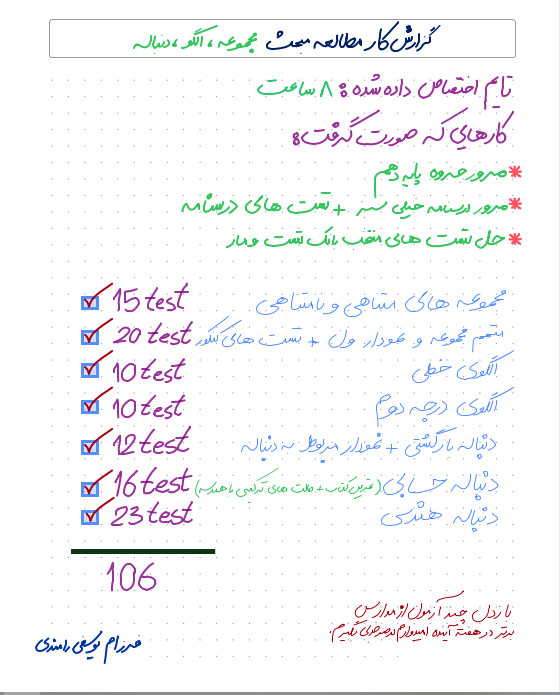 گزارش کار مطالعه مبحث مجموعه، الگو، دنباله
تایم اختصاص داده شده: ۸ ساعت
کارهایی که صورت گرفت:
* مرور جزوه پایه دهم
* مرور درسنامه خیلی سبز + تست های درسنامه
* حل تست های منتخب بانک تست و ماز
مجموعه های متناهی و نامتناهی 15 test
متمم مجموعه و نمودار ون + تست های کنکور 20 test
الگوی خطی 10 test
الگوی درجه دوم 10 test
دنباله بازگشتی + نمودار مربوط به دنباله 12 test
دنباله حسابی (تمرین کتاب + حالت های ترکیبی با هندسه) 16 test
دنباله هندسی 23 test
106
با زدن چند آزمون از مدارس
برتر در هفته آینده امیدوارم درصد خوبی بگیرم.
مرزام یوسفی رامندی